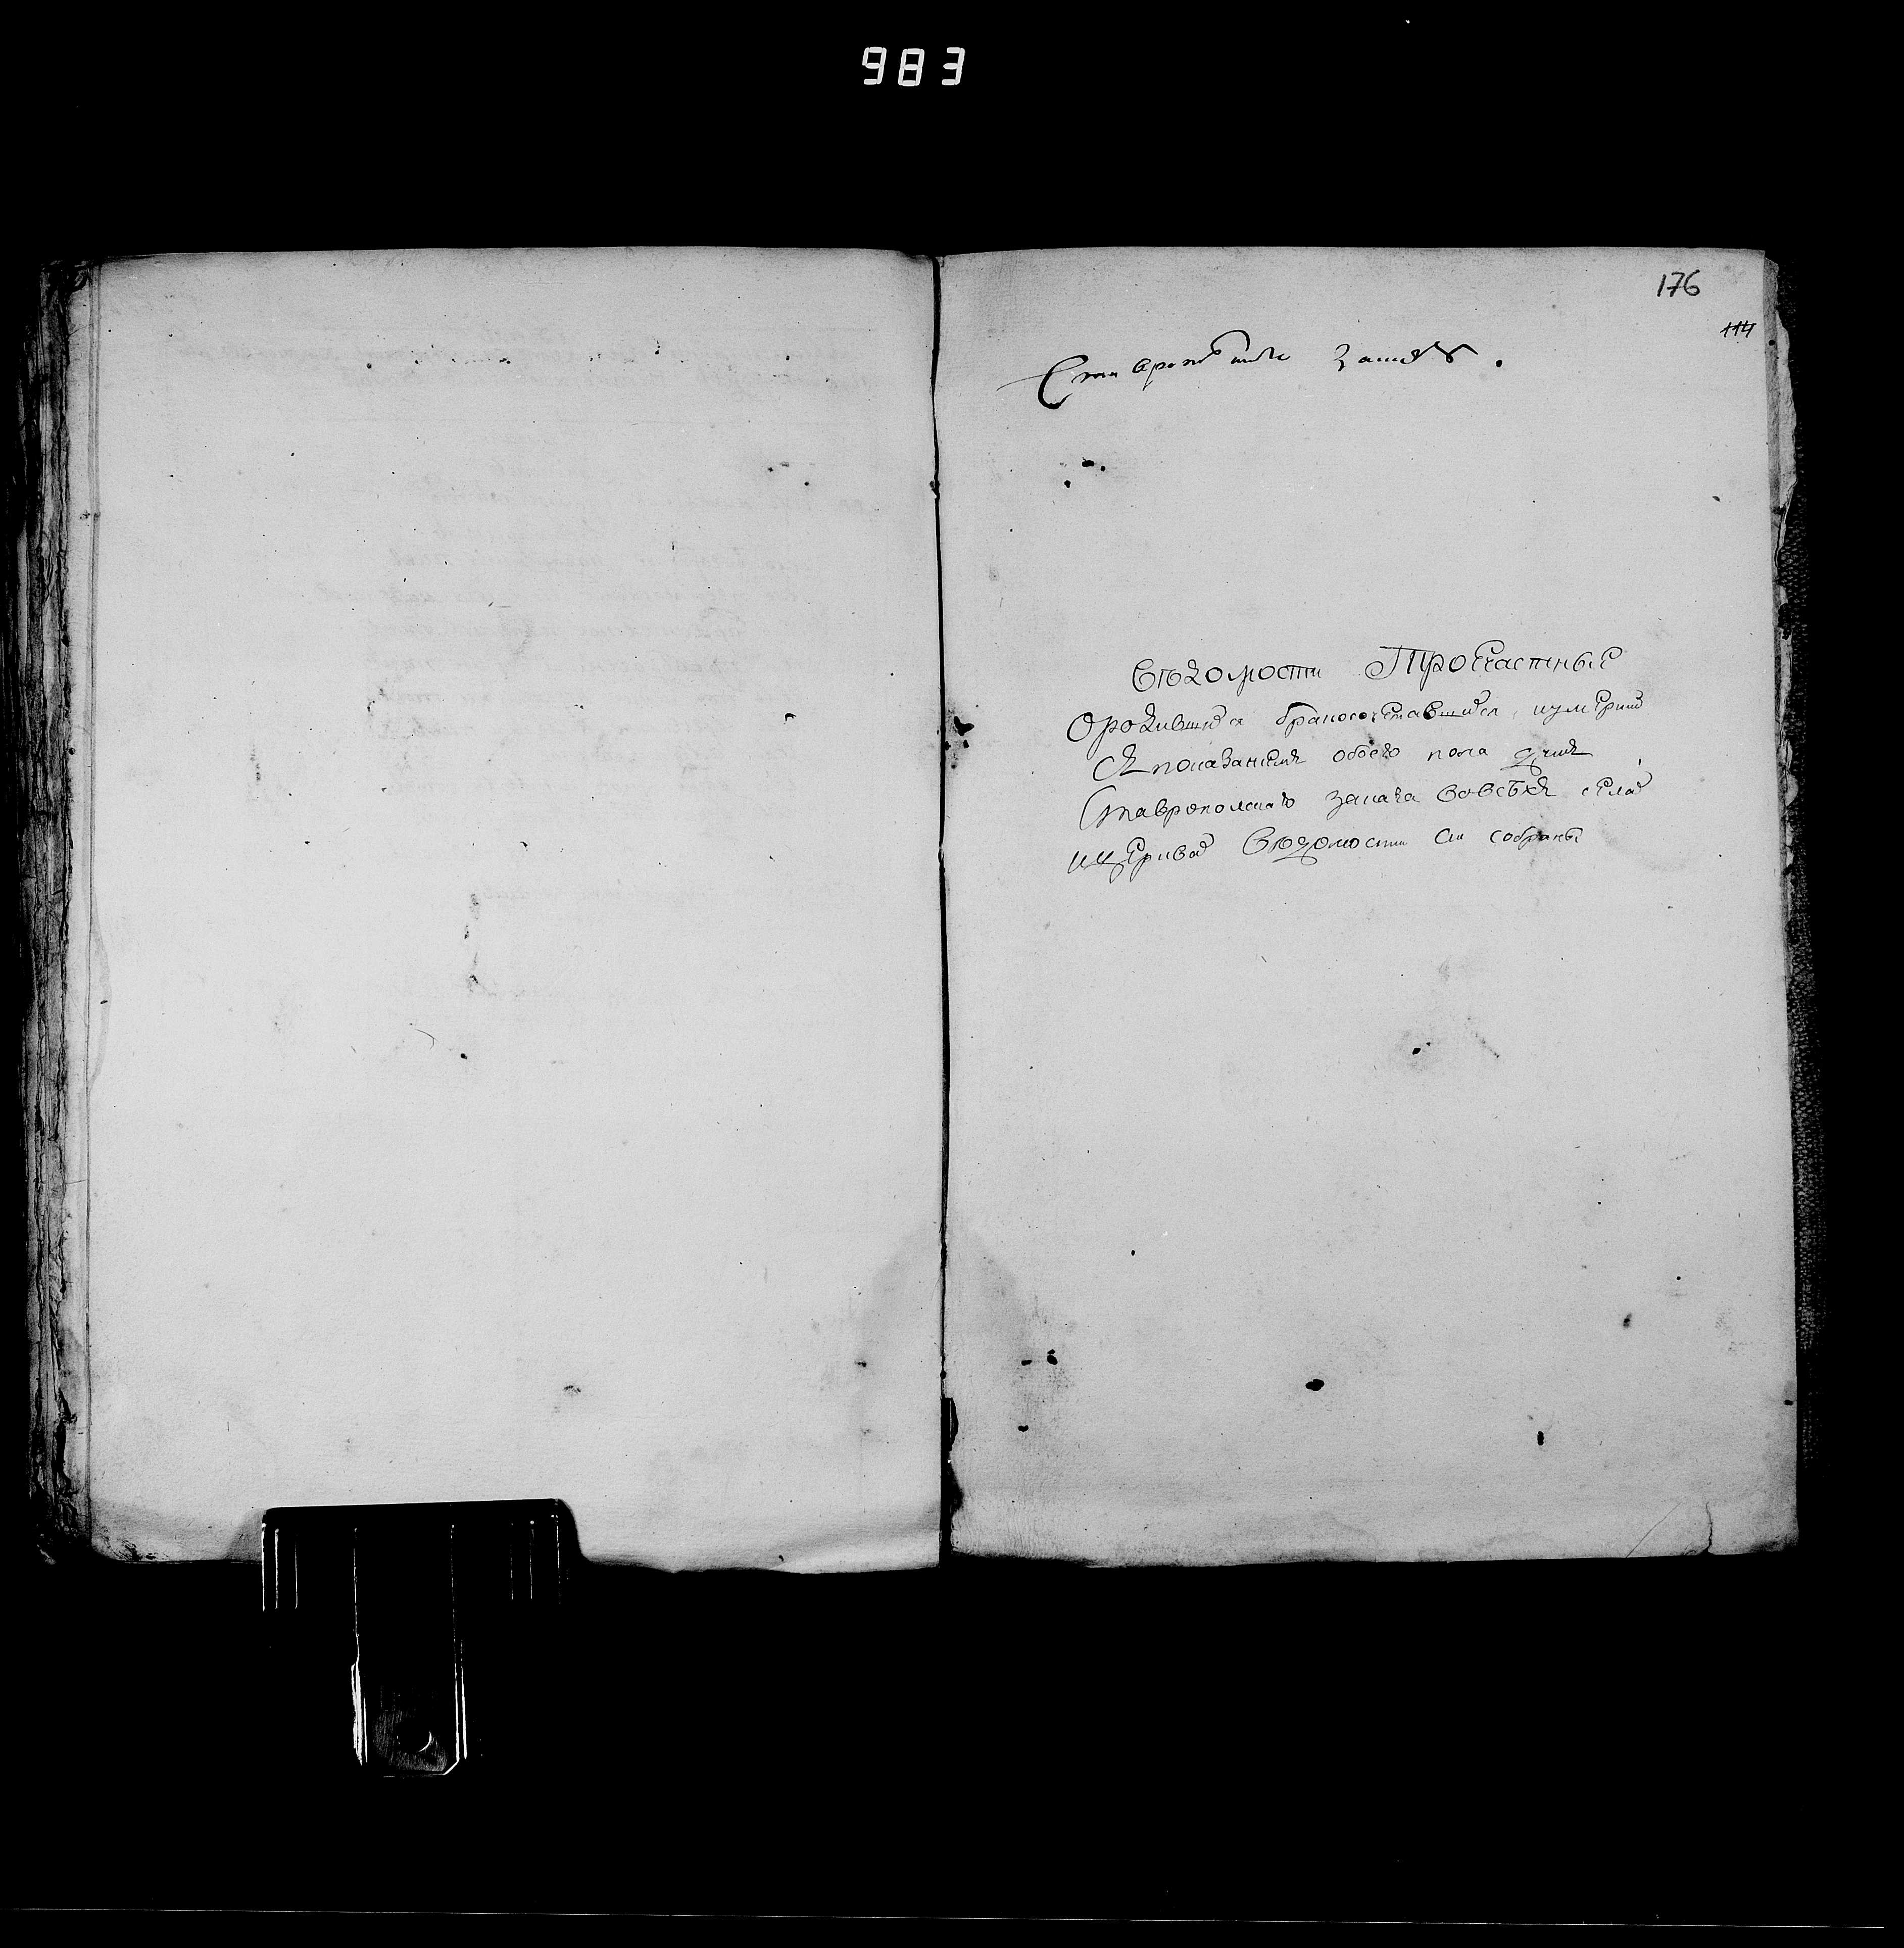 983
176
114
Ставропо
вѣдомости Троечастные
ородившихся бракосочетавшихся, иумерши
сьпоказаниемъ обоего пола душъ
Ставрополскаго заката вовсѣхъ села
ицерквах вѣдомости си собраны